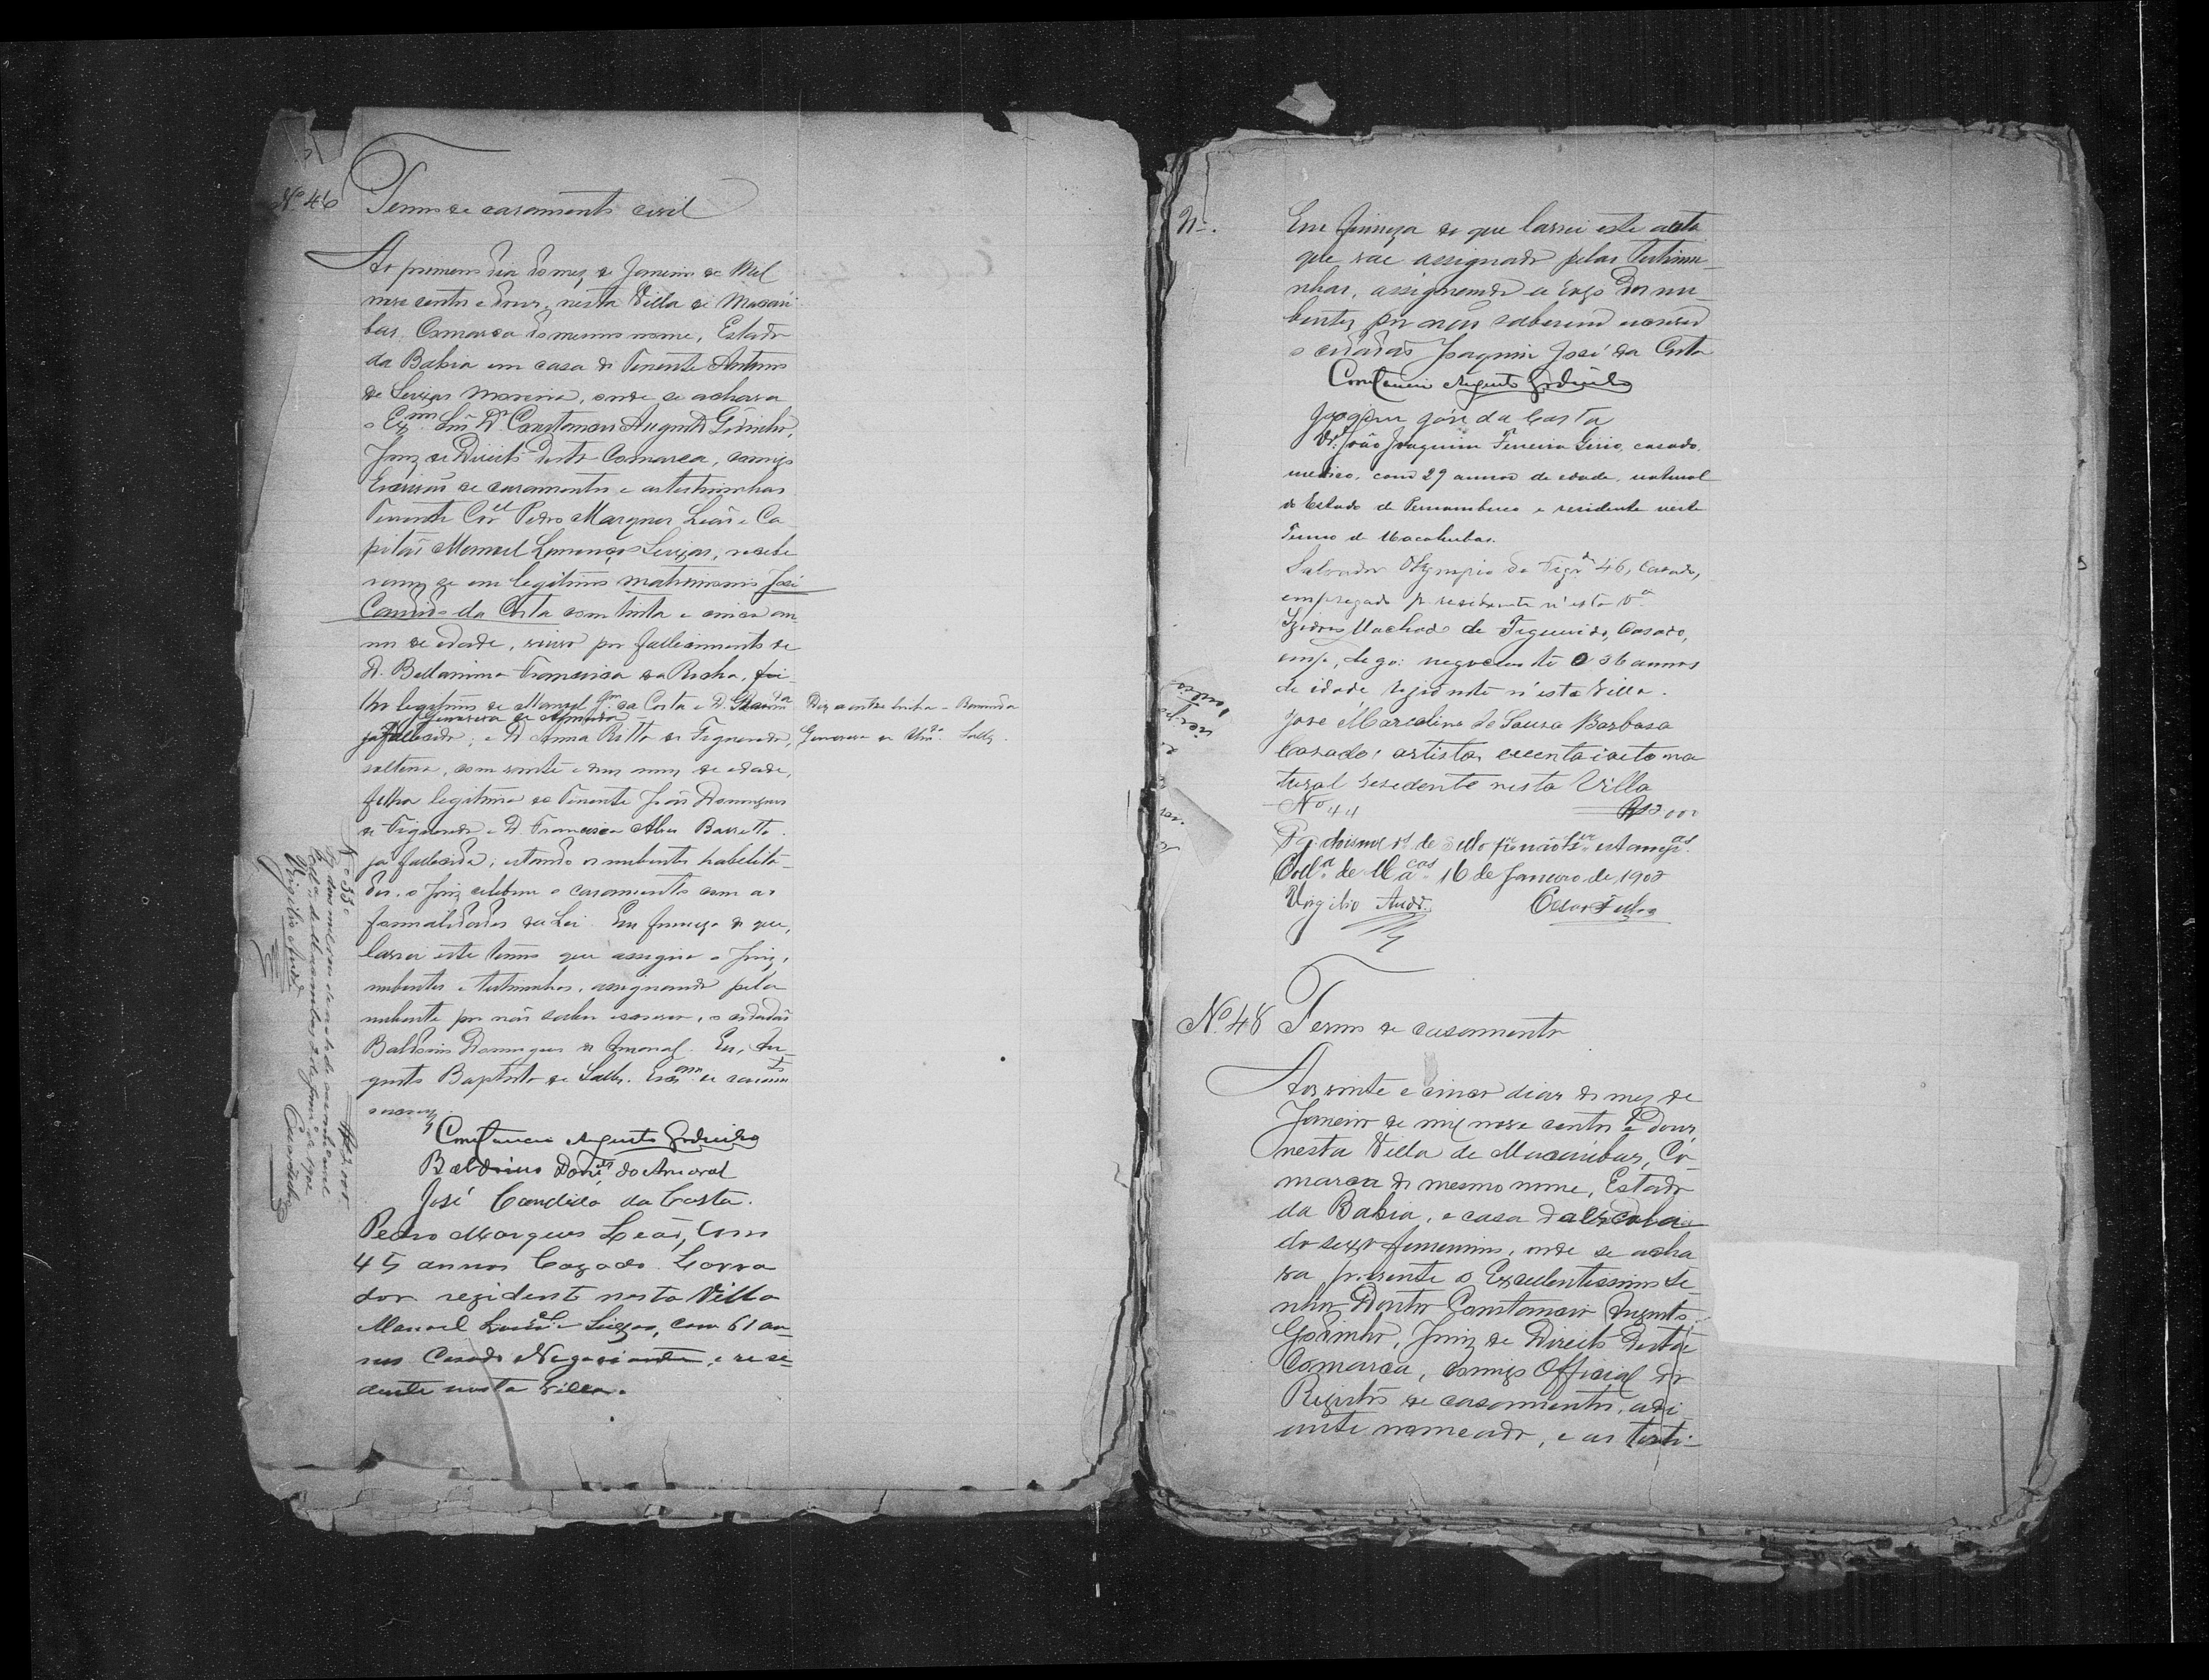 Nº 46
Termo de casamento civil
Ao primeiro dia do mez de Janeiro de Mil
nove centos e dous, nesta Villa de Macahu
bas, Comarca do mesmo nome, Estado
da Bahia em casa do Tenente Antonio
de Seixas Moreira, onde se achava
o Exmo Snr Dr Constancio Augusto Godinho,
Juiz de Direito desta Comarca, comigo
Escrivão de casamentos e as testimunhas
Tenente Cor.el Pedro Marques Leão e Ca
pitão Manuel Lourenço Seixas, recebe
ram se em legitimo matrimonio José
Candido da Costa com trinta e cinco an
nos de edade, viuvo por fallecimento de
D. Bellarmina Francisca da Rocha, fi
lho legitimo de Manoel Jm da Costa e D.
já fallecido; e D. Anna Ritta de Figueredo,
solteira, com vinte e dous annos de edade,
filha legitima do Tenente João Domingues
de Figueredo e D. Francisca Alves Barretto
já fallecida; estando os nubentes habelita
dos, o Juiz celebrou o casamento com as
formalidades da Lei. Em firmeza do que,
lavrei este termo que assigna o Juiz,
nubentes e testimunhas, assignando pela
nubente por não saber escrever, o cidadão
Baldoino Domingues do Amaral. Eu, Au
gusto Baptista de Salles. Escam de casamtos
o escrevy
Constancio Augusto Godinho
Baldoino Doms do Amaral
José Candido da Costa.
Pedro Marques Leão, com
45 annos Cazado Lavra
dor rezidente nesta Villa
Manuel Lourenço Seixas, com 61 an
nos Casado Negociante, e resi
dente nesta Villa.
Diz a entre linha - Raimunda
Generosa de Almda. Salles.
Nº 33
Virgilio Andr.
Nº.
Em firmeza do que lavrei este acto
que vae assignado pelas testimu
nhas, assignando a rogo dos nu
bentes, por não saberem escrever
o cidadão Joaquim José da Costa
Constancio Augusto Godinho
Joaquim José da Costa
Dr. João Joaquim Ferreira Girio, casado,
medico, com 29 annos de edade, natural
do Estado de Pernambuco e residente neste
Termo de Macahubas.
Salvador Olympio de Figdo 46, casado,
empregado p. residente n'esta Va
Izidro Machado de Figueiredo, Casado,
emp, digo: negociante 36 annos
de idade rezidente n'esta Villa.
José Marcolino de Sousa Barbosa
Casado, artista, cecenta ioito na
tural resedente nesta Villa
Nº 44 R$2000
Pg. doismil rs de Sello por não haver estampas.
Colla de Macas 16 de Janeiro de 1902
Virgilio Andr.
Nº 48
Termo de casamento
Aos vinte e cinco dias do mez de
Janeiro de mil nove centos e dous,
nesta Villa de Macaúbas, Co
marca do mesmo nome, Estado
da Bahia, e casa da escola
do sexo femenino, onde se acha
va presente o Excellentissimo Se
nhor Doutor Constancio Augusto
Godinho, Juiz de Direito desta
Comarca, comigo Official do
Registro de casamentos, adi
ante nomeado, e as testi-